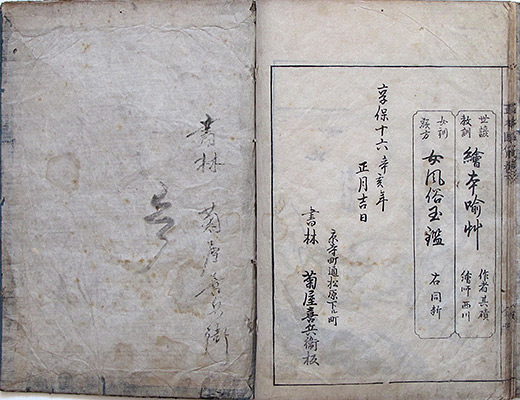 世話
教訓
繪本喩艸
作者其磧
繪師西川
女訓
躾方
女風俗玉鑑
右同断
享保十六辛亥年
正月吉日
京寺町通松原下ル町
書林 菊屋喜兵衛板
書林 菊屋喜兵衛